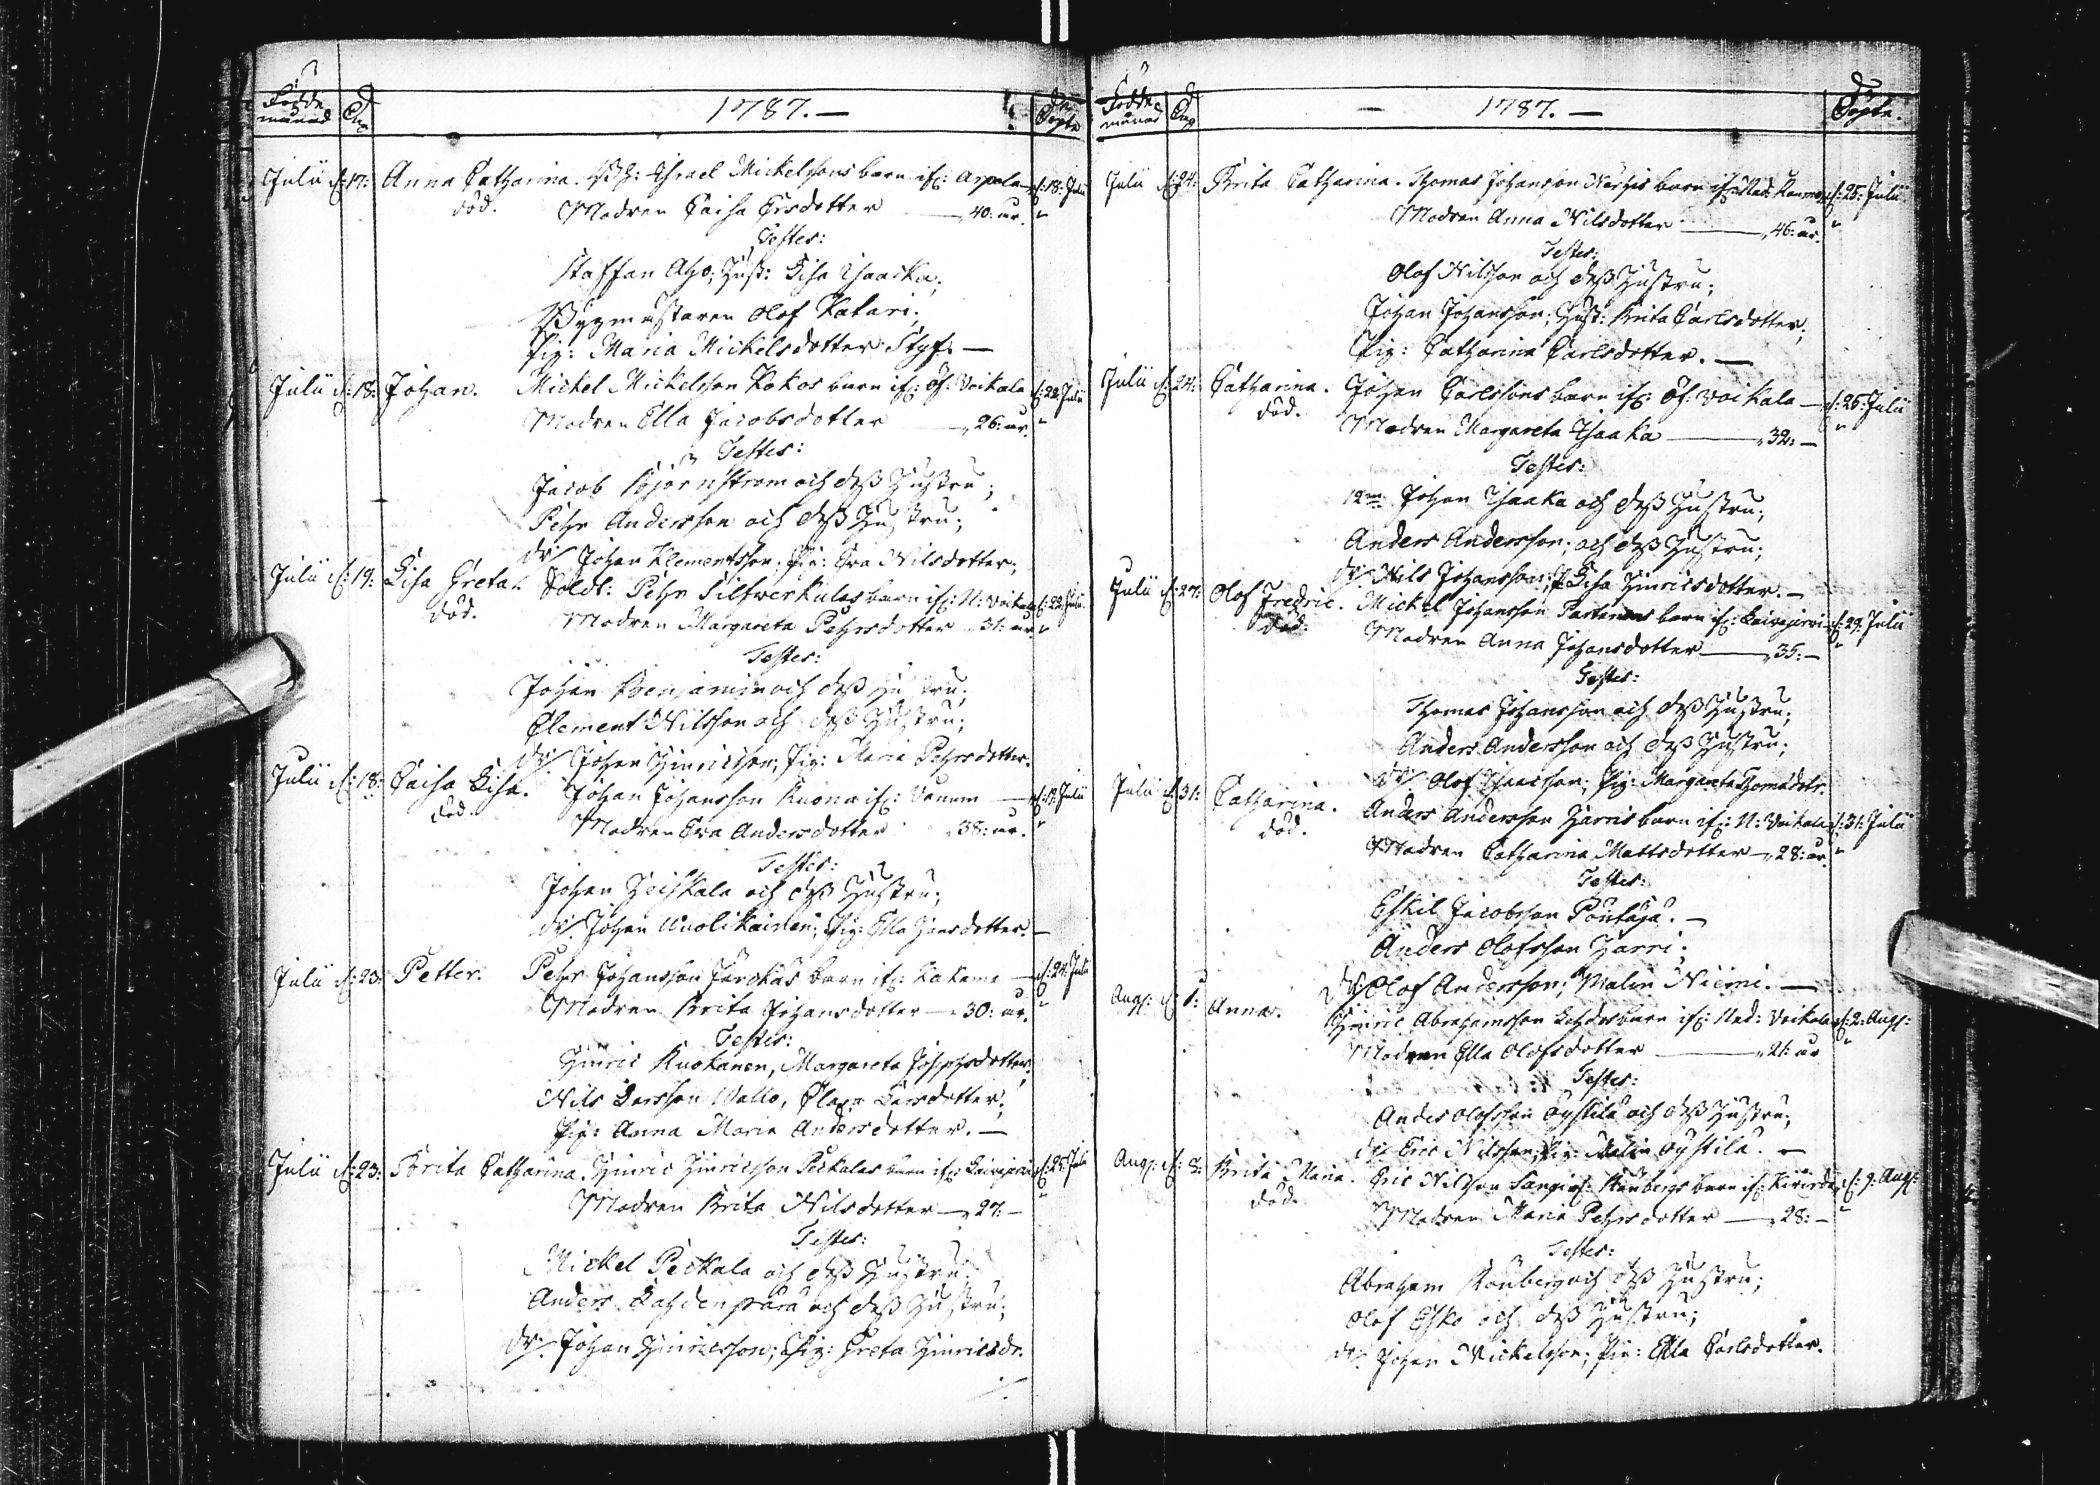 Födde månad Dag 1787.— Döpte
Julii d: 17: Anna Catharina. Israel Mickelsons barn ifr: Arpela d: 18: Julii
död. Modren Caisa Ersdotter — 40: år.
Testes:
Staffan Aho, Hust: Lisa Isaacka;
Byggmästaren Olof Katari;
Pig: Maria Mickelsdotter Styf. —
Julii d: 18: Johan. Mickel Mickelsson Kokos barn ifr: Öf: Voikala d: 22: Julii
Modren Ella Jacobsdotter — 26: år.
Testes:
Jacob Björnström och dess Hustru;
Pehr Andersson och dess Hustru;
dr: Johan Klementsson; Pig: Eva Nilsdotter;
Julii d: 19: Lisa Greta. Soldt: Pehr Silfwerkulas barn ifr: N: Voikala d: 22: Julii
död. Modren Margareta Pehrsdotter 31: år
Testes:
Johan Benjamin och dess Hustru;
Clement Nilsson och dess Hustru;
dr: Johan Hinricsson; Pig: Maria Pehrsdotter.
Julii d: 18: Caisa Lisa. Johan Johansson Kuona ifr: Vanum — d: 19: Julii
död. Modren Eva Andersdotter 38: år.
Testes:
Johan Heiskala och dess Hustru;
dr: Johan Wuolikainen; Pig: Ella Hansdotter. —
Julii d: 23: Petter. Pehr Johansson barn ifr: Kakama — d: 24: Julii
Modren Brita Johansdotter — 30: år.
Testes:
Hinric Kuokanen, Margareta Josephsdotter;
Nils Larsson Wallo, Clara Larsdotter;
Pig: Anna Maria Andersdotter. —
Julii d: 23: Brita Catharina. Hinric Hinricsson Peckalas barn ifr: Kaisajervi d: 25: Julii
Modren Brita Nilsdotter — 27: —
Testes:
Mickel Peckala och dess Hustru;
Anders Lahdenperä och dess Hustru;
dr: Johan Hinricsson; Pig: Greta Hinricsdr.
Födde månad Dag — 1787. — Döpte.
Julii d: 24: Brita Catharina. Thomas Johansson barn ifr: d: 25: Julii
Modren Anna Nilsdotter — 46: år.
Testes:
Olof Nilsson och dess Hustru;
Johan Johansson; Hust: Brita Carlsdotter;
Pig: Catharina Carlsdotter. —
Julii d: 24: Catharina. Johan Carlssons barn ifr: Öf: Voikala — d: 26: Julii
död. Modren Margareta Isaaka — 32: —
Testes:
12m: Johan Isaaka och dess Hustru;
Anders Andersson; och dess Hustru;
dr: Nils Johansson; P: Lisa Hinricsdotter. —
Julii d: 27: Olof Fredric. Mickel Johansson Partanens barn ifr: Kaisajervi d: 29: Julii
död. Modren Anna Johansdotter — 35: —
Testes:
Thomas Johansson och dess Hustru;
Anders Andersson och dess Hustru;
dr: Olof Isaacsson; Pig: Margareta Thomsdotr.
Julii d: 31: Catharina. Anders Andersson Harris barn ifr: N: Voikala d: 31: Julii
död. Modren Catharina Mattsdotter — 28: år.
Testes:
Eskil Jacobsson Pontäjä. —
Anders Olofsson Harri;
dr: Olof Andersson; Malin Niemi. —
Aug: d: 1: Anna. Hinric Abrahamsson barn ifr: Ned: Voikala d: 2: Aug:
Modren Ella Olofsdotter — 21: år
Testes:
Anders Olofsson Oystilä och dess Hustru;
dr: Eric Nilsson; Pig: Malin Oystilä. —
Aug: d: 8: Brita Maria. Eric Nilsson barn ifr: d: 9: Aug:
död. Modren Maria Pehrsdotter — 28: —
Testes:
Abraham Rönberg och dess Hustru;
Olof Esko och dess Hustru;
dr: Johan Mickelsson; Pig: Ella Carlsdotter.